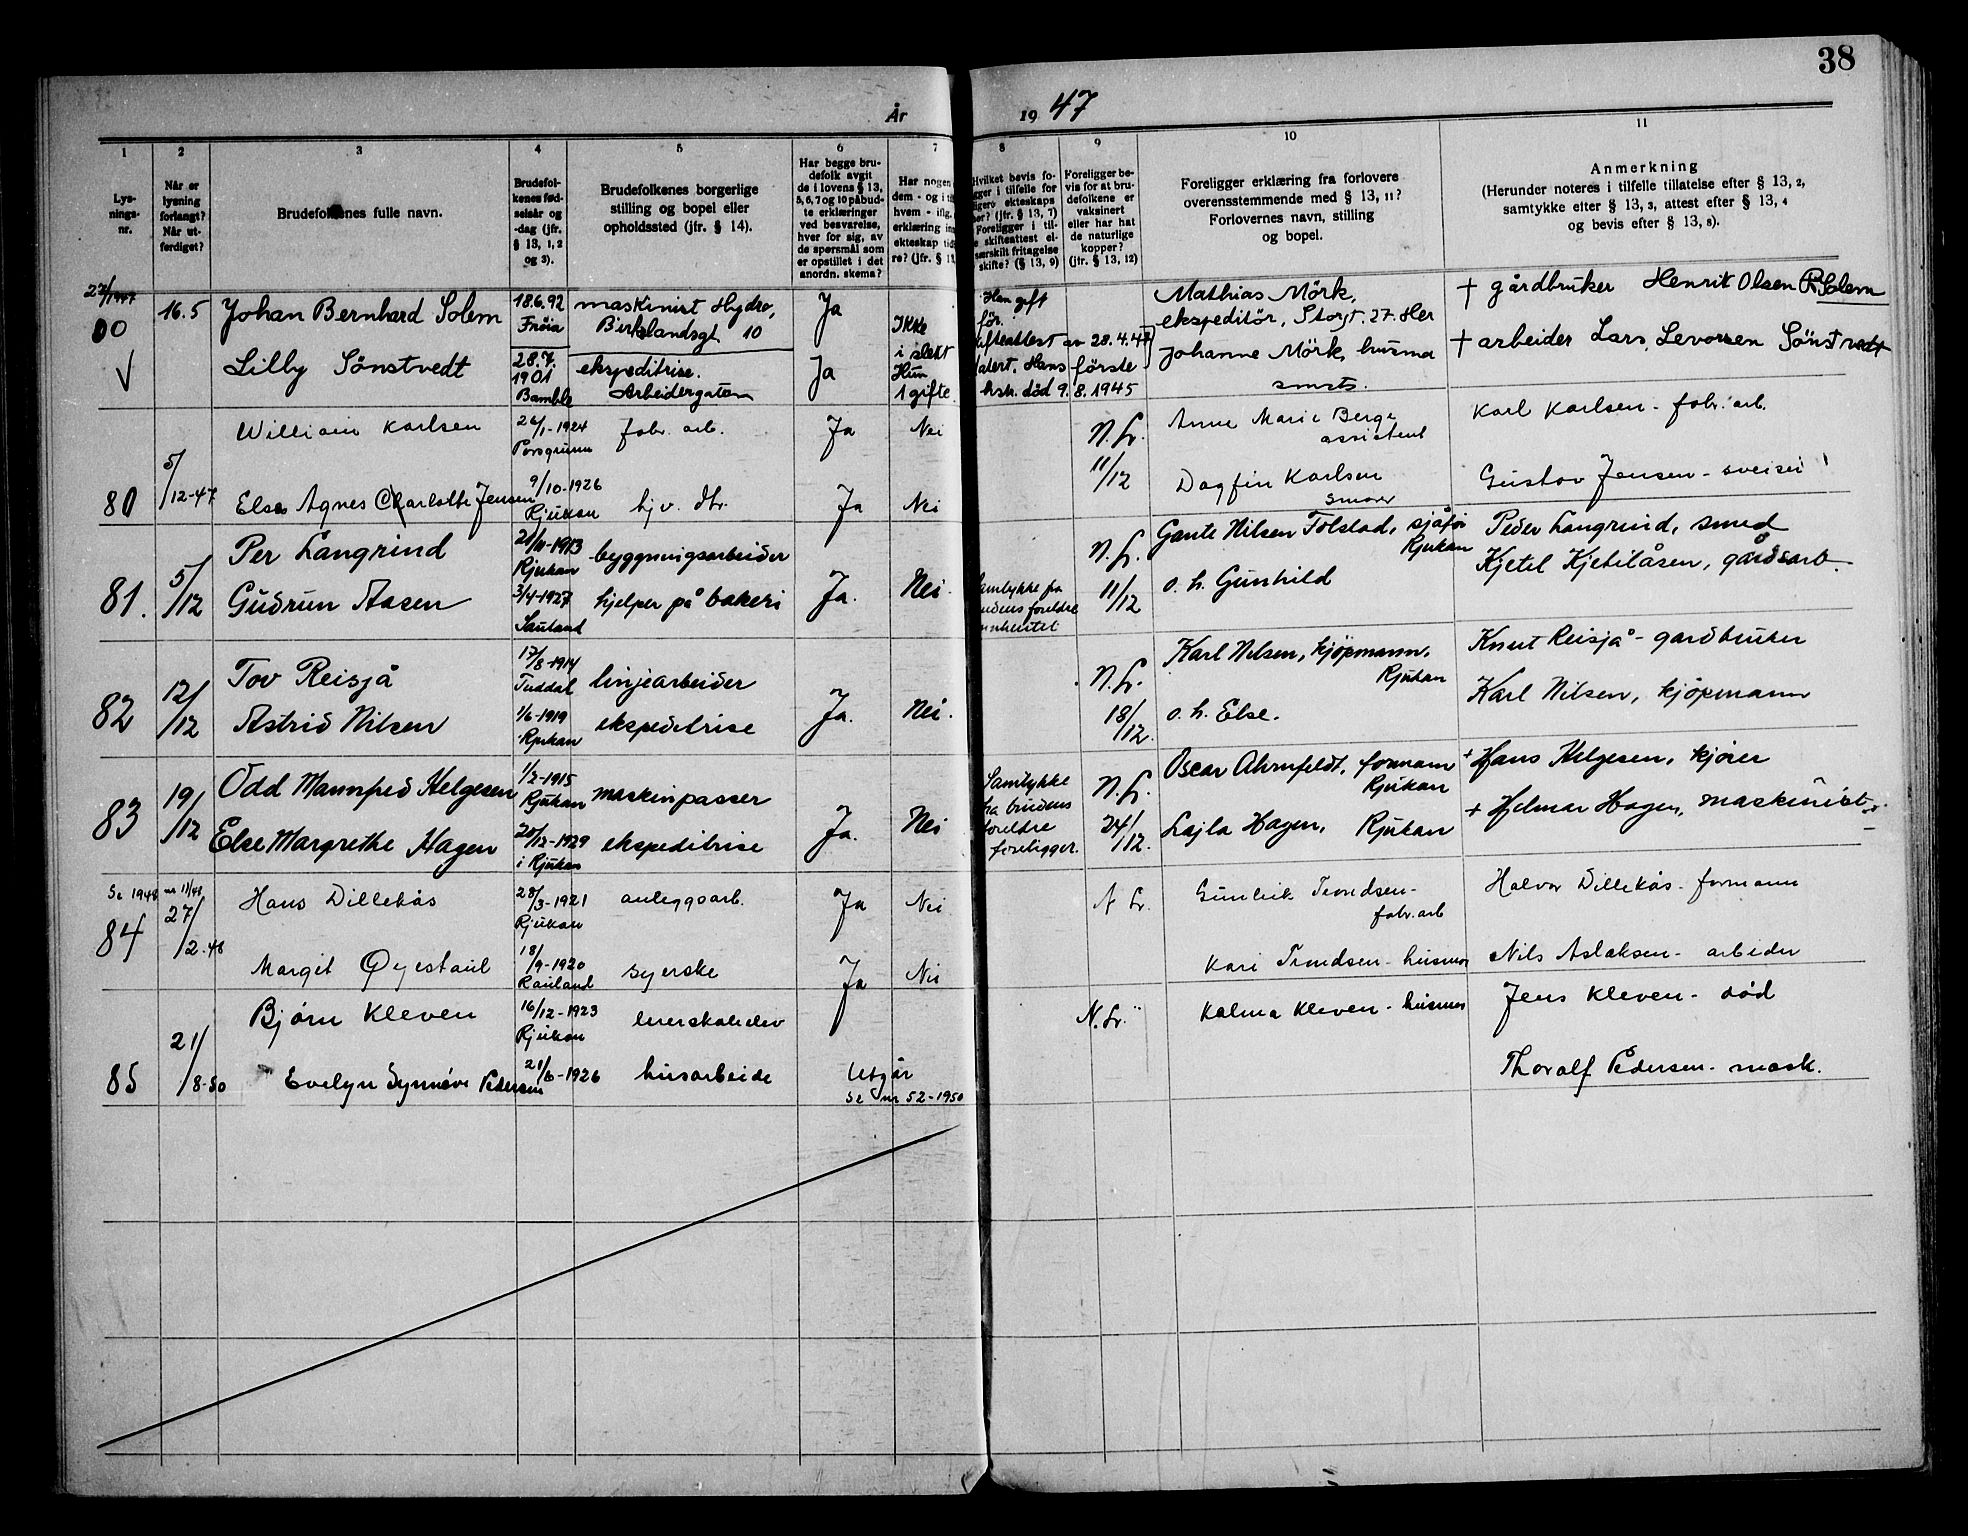 38
År 19 47
1
Lys-
nings-
nr.
2
Når er
lysning
forlangt?
Når ut-
ferdiget?
3
Brudefolkenes fulle navn.
4
Brudefol-
kenes fød-
selsår og
-dag (jfr.
§ 13, 1, 2
og 3).
5
Brudefolkenes borgerlige
stilling og bopel eller
opholdssted (jfr. § 14).
6
Har begge bru-
defolk avgit
de i lovens § 13,
5, 6, 7 og 10 påbud-
te erklæringer
ved besvarelse,
hver for sig, av
de spørsmål som
er opstillet i det
anordn. skema?
7
Har nogen
dem - og i ti
hvem - iflg.
erklæring in
ekteskap tid
re? (jfr. § 1
8
Hvilket bevis fo-
gger i tilfelle for
ligere ekteskaps
ør? (jfr. § 13, 7)
Foreligger i til-
e skifteattest el-
særskilt fritagelse
skifte? (§ 13, 9)
9
Foreligger be-
vis for at bru-
defolkene er
vaksinert
eller har hat
de naturlige
kopper?
(jfr. § 13, 12)
10
Foreligger erklæring fra forlovere
overensstemmende med § 13, 11?
Forlovernes navn, stilling
og bopel.
11
Anmerkning
(Herunder noteres i tilfelle tillatelse efter § 13, 2,
samtykke efter § 13, 3, attest efter § 13, 4
og bevis efter § 13, 8).
27/1947
00
16.5
Johan Bernhard Solem
18.6.92
Frøia
maskinist Hydro,
Birkelandsgt. 10
Ja
Ikke
i slekt
Han gift
før.
Mathias Mörk,
ekspeditör, Storgt. 27. Her
† gårdbruker Henrik Olsen Solem
√
Lilly Sønstvedt
28.7.
1901
Bamble
ekspeditrise.
Arbeidergaten
Ja
Hun
1 gifte.
ifteattest av 28.4.47
datert. Hans første
hstr. död 9.8.1945
Johanne Mörk, husmo
smsts.
† arbeider Lars Levorsen Sønstvedt
80
5/12-47
William Karlsen
26/1-1924
Porsgrunn
fabr. arb.
Ja
Nei
N. Lr.
Anne Marie Berge
assistent
Karl Karlsen - fabr. arb.
Else Agnes Charlotte Jensen
9/10-1926
Rjukan
hj v. dtr.
Ja
Nei
11/12
Dagfin Karlsen
Gustav Jensen - sveiser
81.
5/12
Per Langrind
21/11-1913
Rjukan
bygningsarbeider
Ja.
Nei.
N. Lr.
Gante Nilsen Tolstad, sjåfør
Rjukan
Peder Langrind, smed
Gudrun Aasen
3/4-1927
Sauland
hjelper på bakeri
Samtykke fra
foreldre
11/12
o. h. Gunhild
Kjetil Kjetilåsen, gårdsarb.
82
12/12
Tov Reisjå
17/8-1914
Tuddal
linjearbeider
Ja.
Nei.
N. Lr.
Karl Nilsen, kjøpmann.
Rjukan
Knut Reisjå - gardbruker
Astrid Nilsen
1/6-1919
Rjukan
ekspeditrise
18/12.
o. h. Else.
Karl Nilsen, kjøpmann
83
19/12
Odd Mannfred Helgesen
1/2-1915
Rjukan
maskinpasser
Ja.
Nei
Samtykke
fra brudens
foreldre
foreligger.
N. Lr.
Oscar Ahrnfeldt, formann
Rjukan
+ Hans Helgesen, kjører
Else Margrethe Hagen
20/12-1929
i Rjukan
ekspeditrise
24/12.
Lajla Hagen, Rjukan
+ Hjelmar Hagen, maskinist
Se 1948 nr 11/48
84
27/2-48
Hans Dillekås
28/3-1921
Rjukan
anleggsarb.
Ja
Nei
N Lr.
Gunleik Trondsen -
fabr. arb
Halvor Dillekås - formann
Margit Øyestaul
18/9-1920
Rauland
syerske
Ja
Nei
Kari Trondsen - husmor
Nils Aslaksen - arbeider
85
21/8-50
Bjørn Kleven
16/12-1923
Rjukan
lærerskoleelev
N. Lr.
Kalma Kleven - husmor
Jens Kleven - død
Evelyn Synnøve Pedersen
21/6-1926
husarbeide
Utgår
Se nr 52-1950
Thoralf Pedersen - mask.